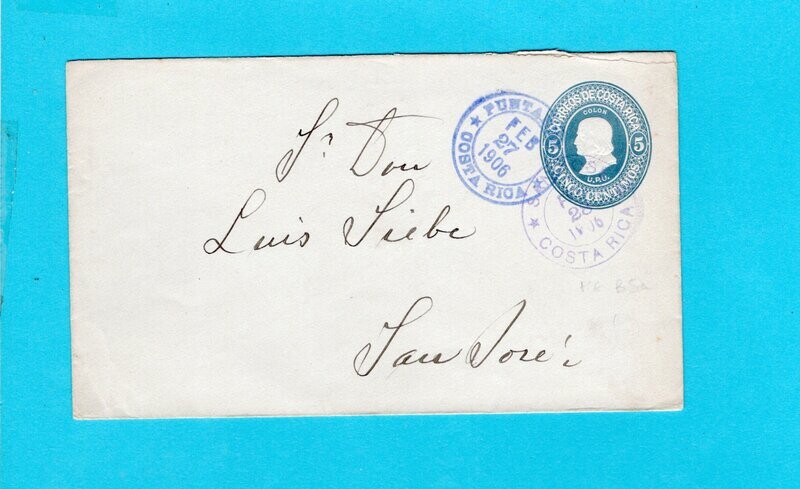 Sr Don
Luis Siebe
San José
PUNTA
FEB
27
1906
COSTA RICA
CORREOS DE COSTA RICA
COLON
5 5
U.P.U.
CINCO CENTIMOS
28
COSTA RICA